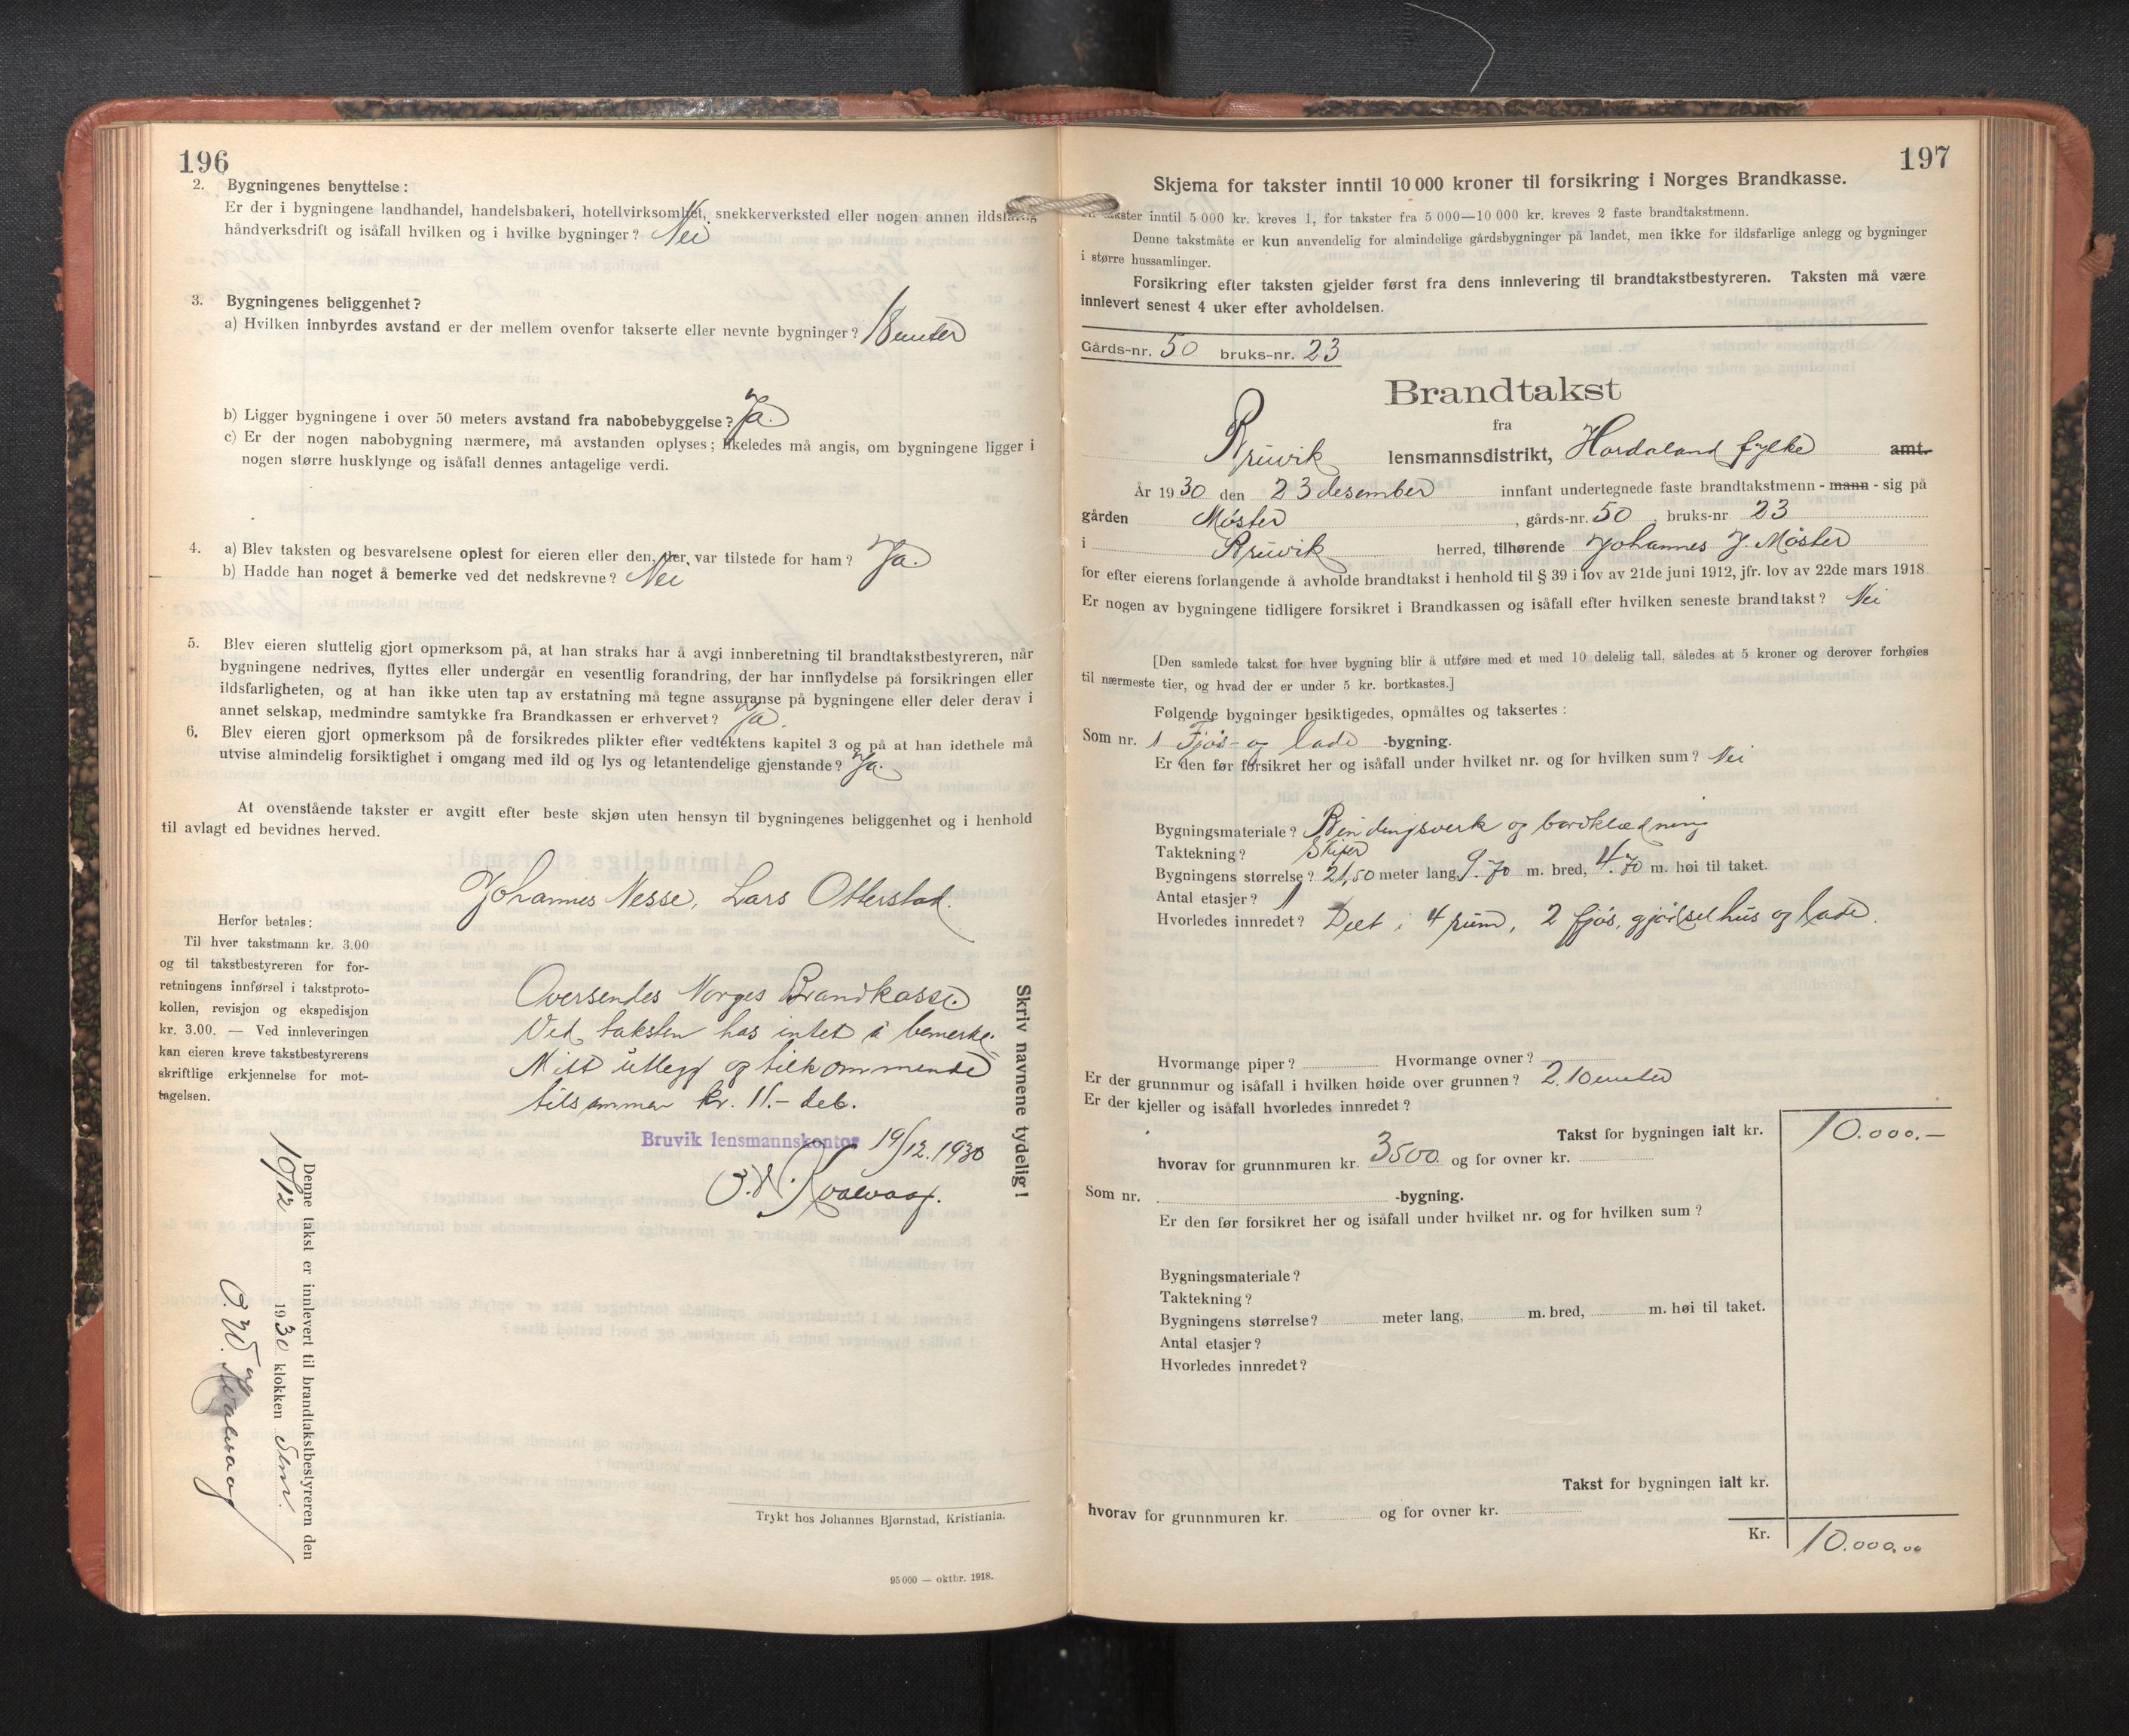 196
2. Bygningenes benyttelse:
Er der i bygningene landhandel, handelsbakeri, hotellvirksomhet, snekkerverksted eller nogen annen ildsfarlig
håndverksdrift og isåfall hvilken og i hvilke bygninger? Nei
3. Bygningenes beliggenhet?
a) Hvilken innbyrdes avstand er der mellem ovenfor takserte eller nevnte bygninger? 18 meter
b) Ligger bygningene i over 50 meters avstand fra nabobebyggelse? Ja.
c) Er der nogen nabobygning nærmere, må avstanden oplyses; likeledes må angis, om bygningene ligger i
nogen større husklynge og isåfall dennes antagelige verdi.
4. a) Blev taksten og besvarelsene oplest for eieren eller den, der var tilstede for ham? Ja.
b) Hadde han noget å bemerke ved det nedskrevne? Nei
5. Blev eieren sluttelig gjort opmerksom på, at han straks har å avgi innberetning til brandtakstbestyreren, når
bygningene nedrives, flyttes eller undergår en vesentlig forandring, der har innflydelse på forsikringen eller
ildsfarligheten, og at han ikke uten tap av erstatning må tegne assuranse på bygningene eller deler derav i
annet selskap, medmindre samtykke fra Brandkassen er erhvervet? Ja.
6. Blev eieren gjort opmerksom på de forsikredes plikter efter vedtektens kapitel 3 og på at han idethele må
utvise almindelig forsiktighet i omgang med ild og lys og letantendelige gjenstande? Ja.
At ovenstående takster er avgitt efter beste skjøn uten hensyn til bygningenes beliggenhet og i henhold
til avlagt ed bevidnes herved.
Johannes Nesse, Lars Otterstad.
Herfor betales:
Til hver takstmann kr. 3.00
og til takstbestyreren for for-
retningens innførsel i takstproto-
kollen, revisjon og ekspedisjon
kr. 3.00. — Ved innleveringen
kan eieren kreve takstbestyrerens
skriftlige erkjennelse for mot-
tagelsen.
Oversendes Norges Brandkasse.
Ved taksten has intet å bemerke.
Mitt utlegg og tilkommende
tilsammen kr. 11.- deb.
Bruvik lensmannskontor 19/12.1930
O. W. Kvalvaag.
Skriv navnene tydelig!
Denne takst er innlevert til brandtakstbestyreren den
10/12 1930 klokken
O. W. Kvalvaag
Trykt hos Johannes Bjørnstad, Kristiania.
95 000 — oktbr. 1918.
197
Skjema for takster inntil 10 000 kroner til forsikring i Norges Brandkasse.
takster inntil 5 000 kr. kreves 1, for takster fra 5 000—10 000 kr. kreves 2 faste brandtakstmenn.
Denne takstmåte er kun anvendelig for almindelige gårdsbygninger på landet, men ikke for ildsfarlige anlegg og bygninger
i større hussamlinger.
Forsikring efter taksten gjelder først fra dens innlevering til brandtakstbestyreren. Taksten må være
innlevert senest 4 uker efter avholdelsen.
Gårds-nr. 50 bruks-nr. 23
Brandtakst
fra
Bruvik lensmannsdistrikt, Hordaland fylke amt.
År 1930 den 23 desember innfant undertegnede faste brandtakstmenn - mann - sig på
gården Møster, gårds-nr. 50, bruks-nr. 23
i Bruvik herred, tilhørende Johannes J. Møster
for efter eierens forlangende å avholde brandtakst i henhold til § 39 i lov av 21de juni 1912, jfr. lov av 22de mars 1918
Er nogen av bygningene tidligere forsikret i Brandkassen og isåfall efter hvilken seneste brandtakst? Nei
[Den samlede takst for hver bygning blir å utføre med et med 10 delelig tall, således at 5 kroner og derover forhøies
til nærmeste tier, og hvad der er under 5 kr. bortkastes.]
Følgende bygninger besiktigedes, opmåltes og taksertes:
Som nr. 1 Fjøs- og lade -bygning.
Er den før forsikret her og isåfall under hvilket nr. og for hvilken sum? Nei
Bygningsmateriale? Bindingsverk og bordklædning
Taktekning? Skifer
Bygningens størrelse? 21,50 meter lang, 9.70 m. bred, 4.70 m. høi til taket.
Antal etasjer? 1
Hvorledes innredet? Delt i 4 rum, 2 fjøs, gjødselhus og lade.
Hvormange piper? Hvormange ovner?
Er der grunnmur og isåfall i hvilken høide over grunnen? 2.10 meter
Er der kjeller og isåfall hvorledes innredet?
Takst for bygningen ialt kr. 10.000.-
hvorav for grunnmuren kr. 3500. og for ovner kr.
Som nr. -bygning.
Er den før forsikret her og isåfall under hvilket nr. og for hvilken sum?
Bygningsmateriale?
Taktekning?
Bygningens størrelse? meter lang, m. bred, m. høi til taket.
Antal etasjer?
Hvorledes innredet?
Takst for bygningen ialt kr.
hvorav for grunnmuren kr. og for ovner kr.
Kr. 10.000.00